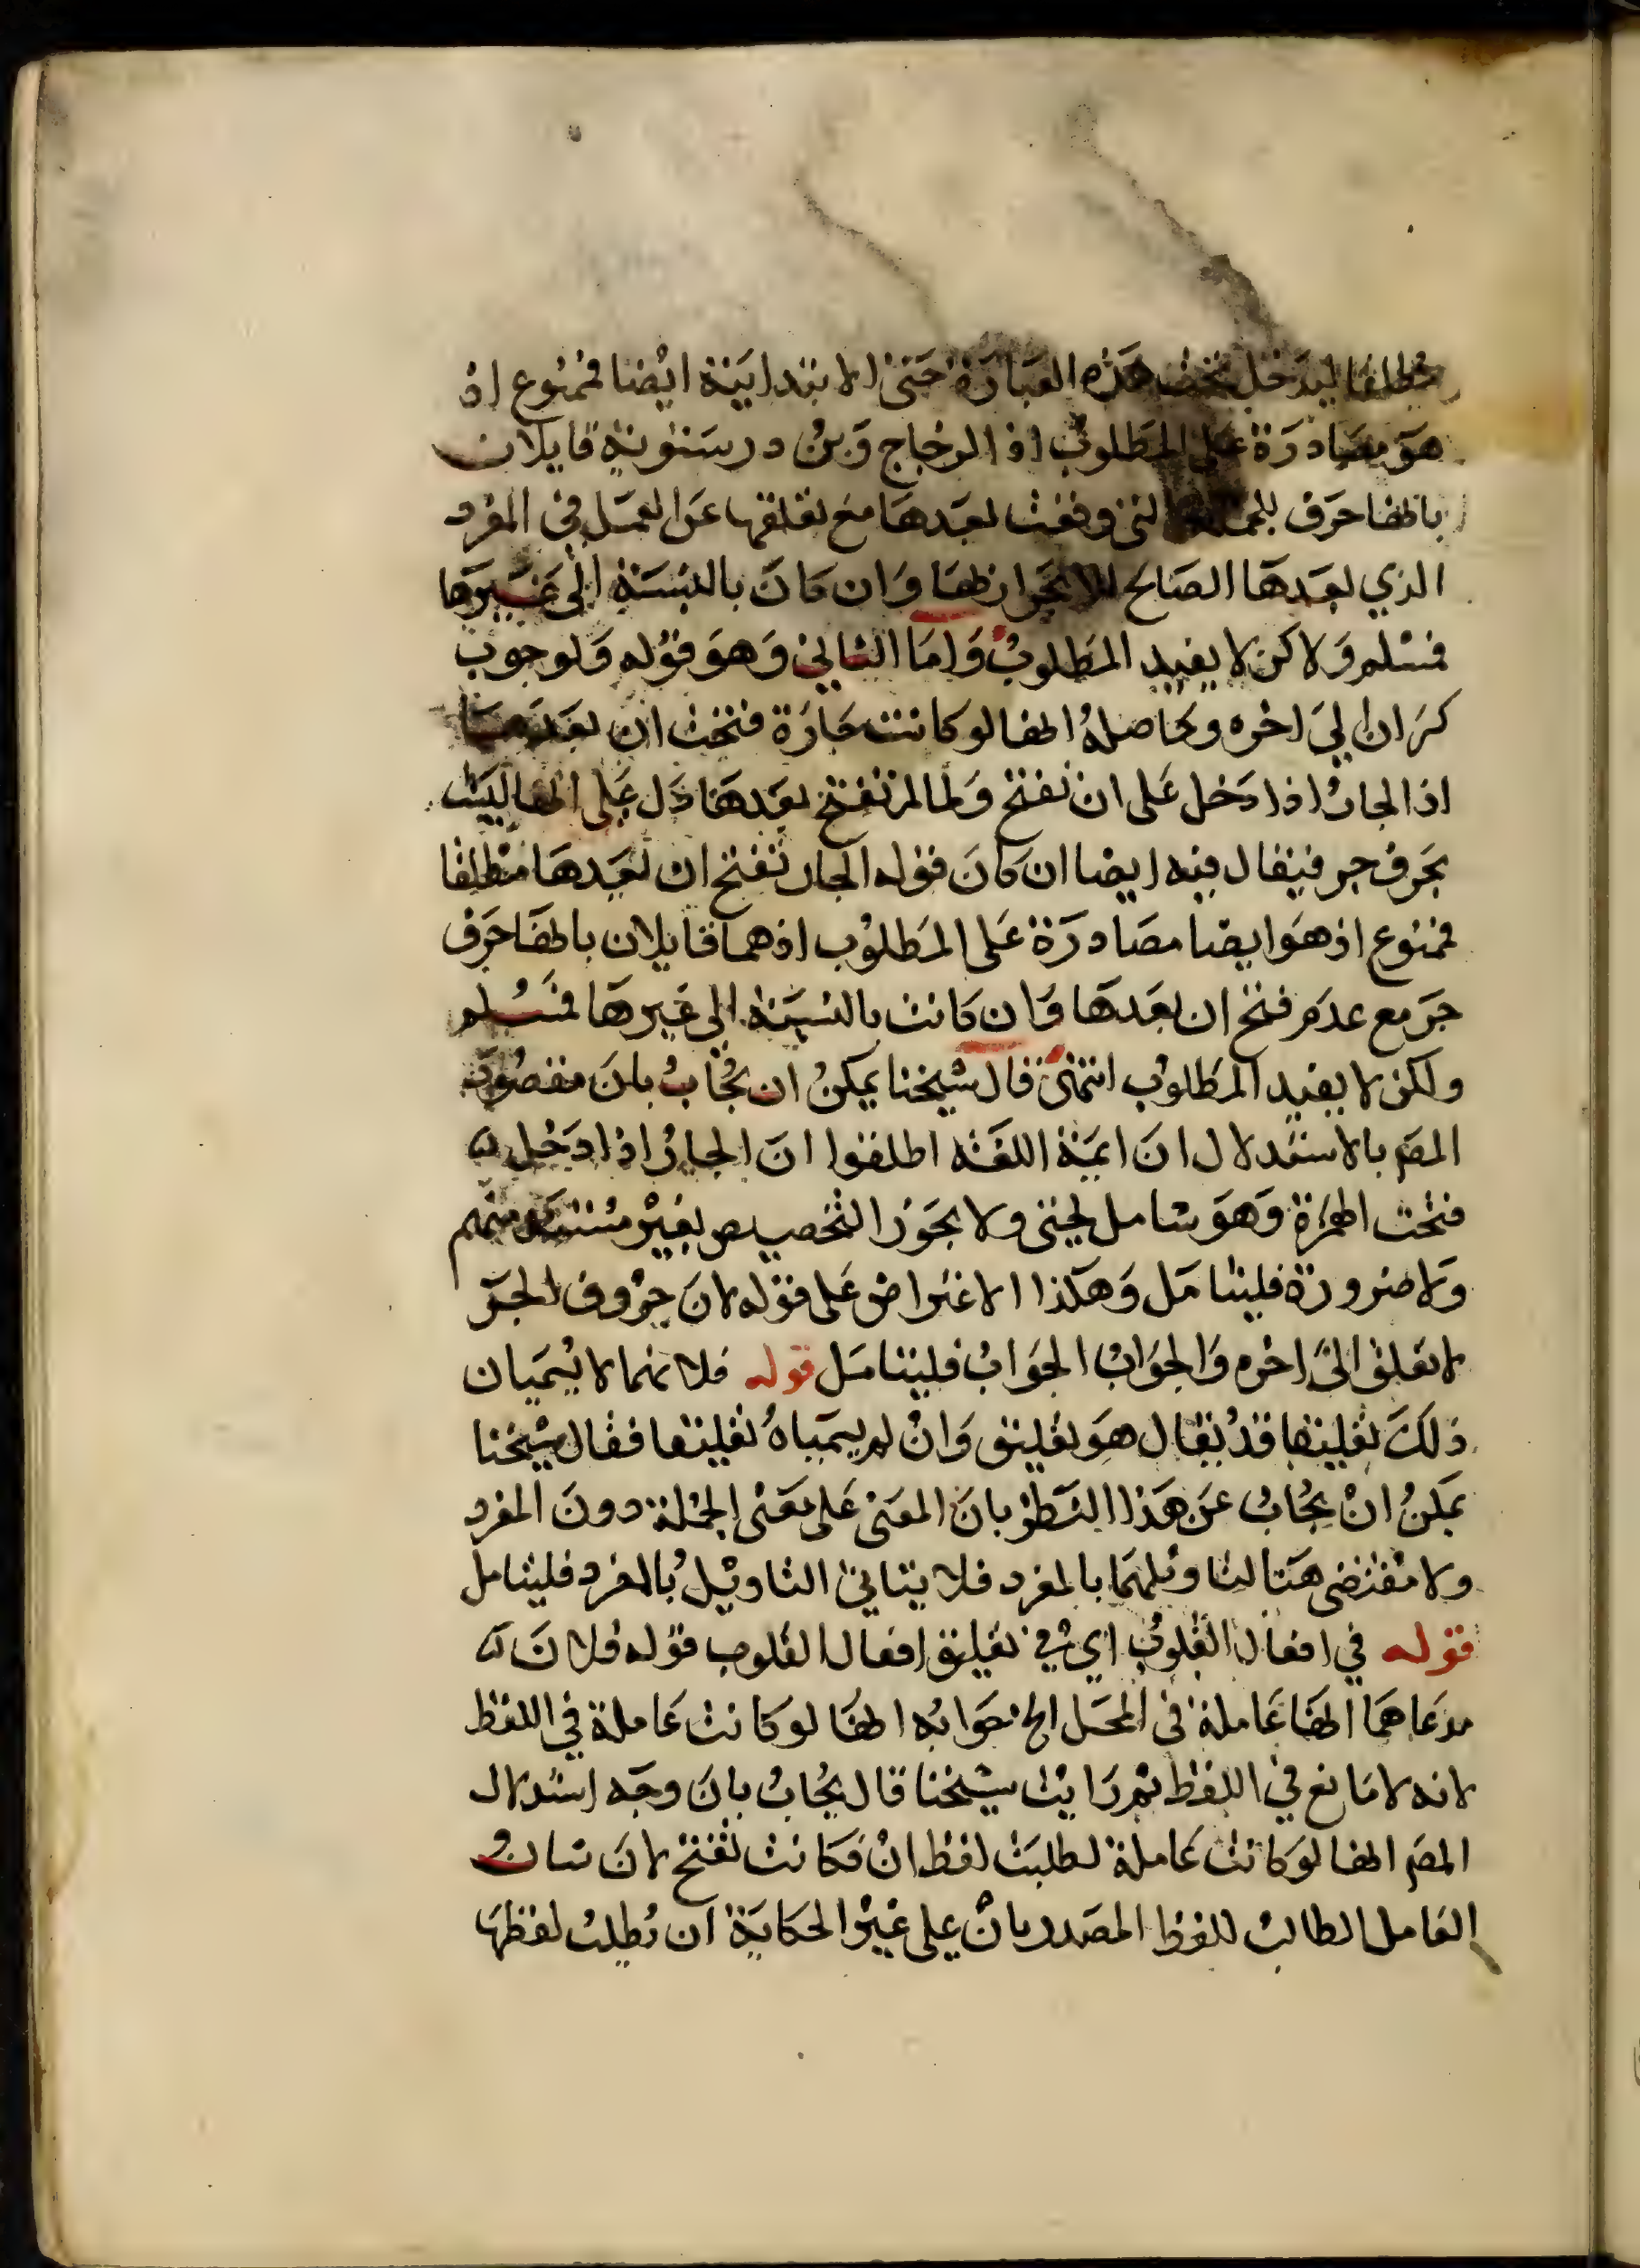 مطلقا ليدخل تحت هذه العبارة حتى الابتدايية ايضا فممنوع اذ
هو مصادرة على المطلوب اذ الزجاج وبن درستويه قايلان
بانها حرف للجملة التى وقعت بعدها مع تعلقها عن العمل فى المفرد
الذي بعدها الصالح للانجرار بها وان كان بالنسبة الى غيرها
فمسلم ولاكن لا يفيد المطلوب واما الثاني وهو قوله ولوجوب
كسر ان الي اخره وحاصله انها لو كانت جارة فتحت ان بعدها
اذ الجار اذا دخل على ان تفتح ولما لم تفتح بعدها دل على انها ليست
بحرف جر فيقال فيه ايضا ان كان قوله الجار تفتح ان بعدها مطلقا
فممنوع اذ هو ايضا مصادرة على المطلوب اذ هما قايلان بانها حرف
جر مع عدم فتح ان بعدها وان كانت بالنسبة الى غيرها فمسلم
ولكن لا يفيد المطلوب انتهى قال شيخنا يمكن ان يجاب بان مقصود
المصـ بالاستدلال ان ايمة اللغة اطلقوا ان الجار اذا دخل
فتحت الهمزة وهو شامل لحتى ولا يجوز التخصيص بغير مستند منهم
ولا ضرورة فليتامل وهكذا الاعتراض على قوله لان حروف الجر
لا تعلق الى اخره والجواب الجواب فليتامل قوله فلانهما لا يسميان
ذلك تعليقا قد يقال هو تعليق وان لم يسمياه تعليقا فقال شيخنا
يمكن ان يجاب عن هذا النظر بان المعنى على معنى الجملة دون المفرد
ولا مقتضى هنا لتاويلها بالمفرد فلا يتاتى التاويل بالمفرد فليتامل
قوله في افعال القلوب اي في تعليق افعال القلوب قوله فلان
مدعاهما انها عاملة فى المحل الخ جوابه انها لو كانت عاملة في اللفظ
لانه لا مانع في اللفظ ثم رايت شيخنا قال يجاب بان وجه استدلال
المصـ انها لو كانت عاملة لطلبت لفظ ان فكانت تفتح لان شان
العامل الطالب للفظ المصدر بان على غير الحكاية ان تطلب لفظها